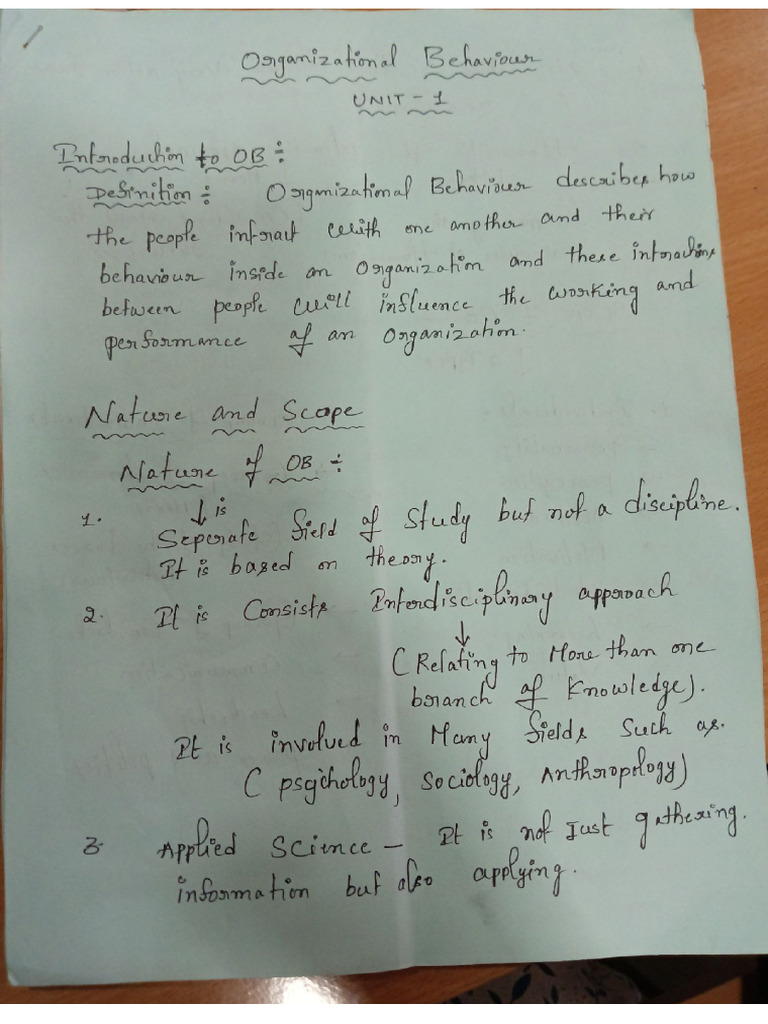 Organizational Behaviour
UNIT - 1
Introduction to OB ÷
Definition ÷ Organizational Behaviour describes how
the people interact with one another and their
behaviour inside an Organization and these interactions
between people will influence the working and
performance of an Organization.
Nature and Scope
Nature of OB ÷
1. ↓ is
Seperate field of Study but not a discipline.
It is based on theory.
2. It is Consists Interdisciplinary approach
↓
(Relating to More than one
branch of Knowledge).
It is involved in Many fields Such as.
( psychology, Sociology, Anthropology)
3. Applied Science - It is not Just gathering.
information but also applying.